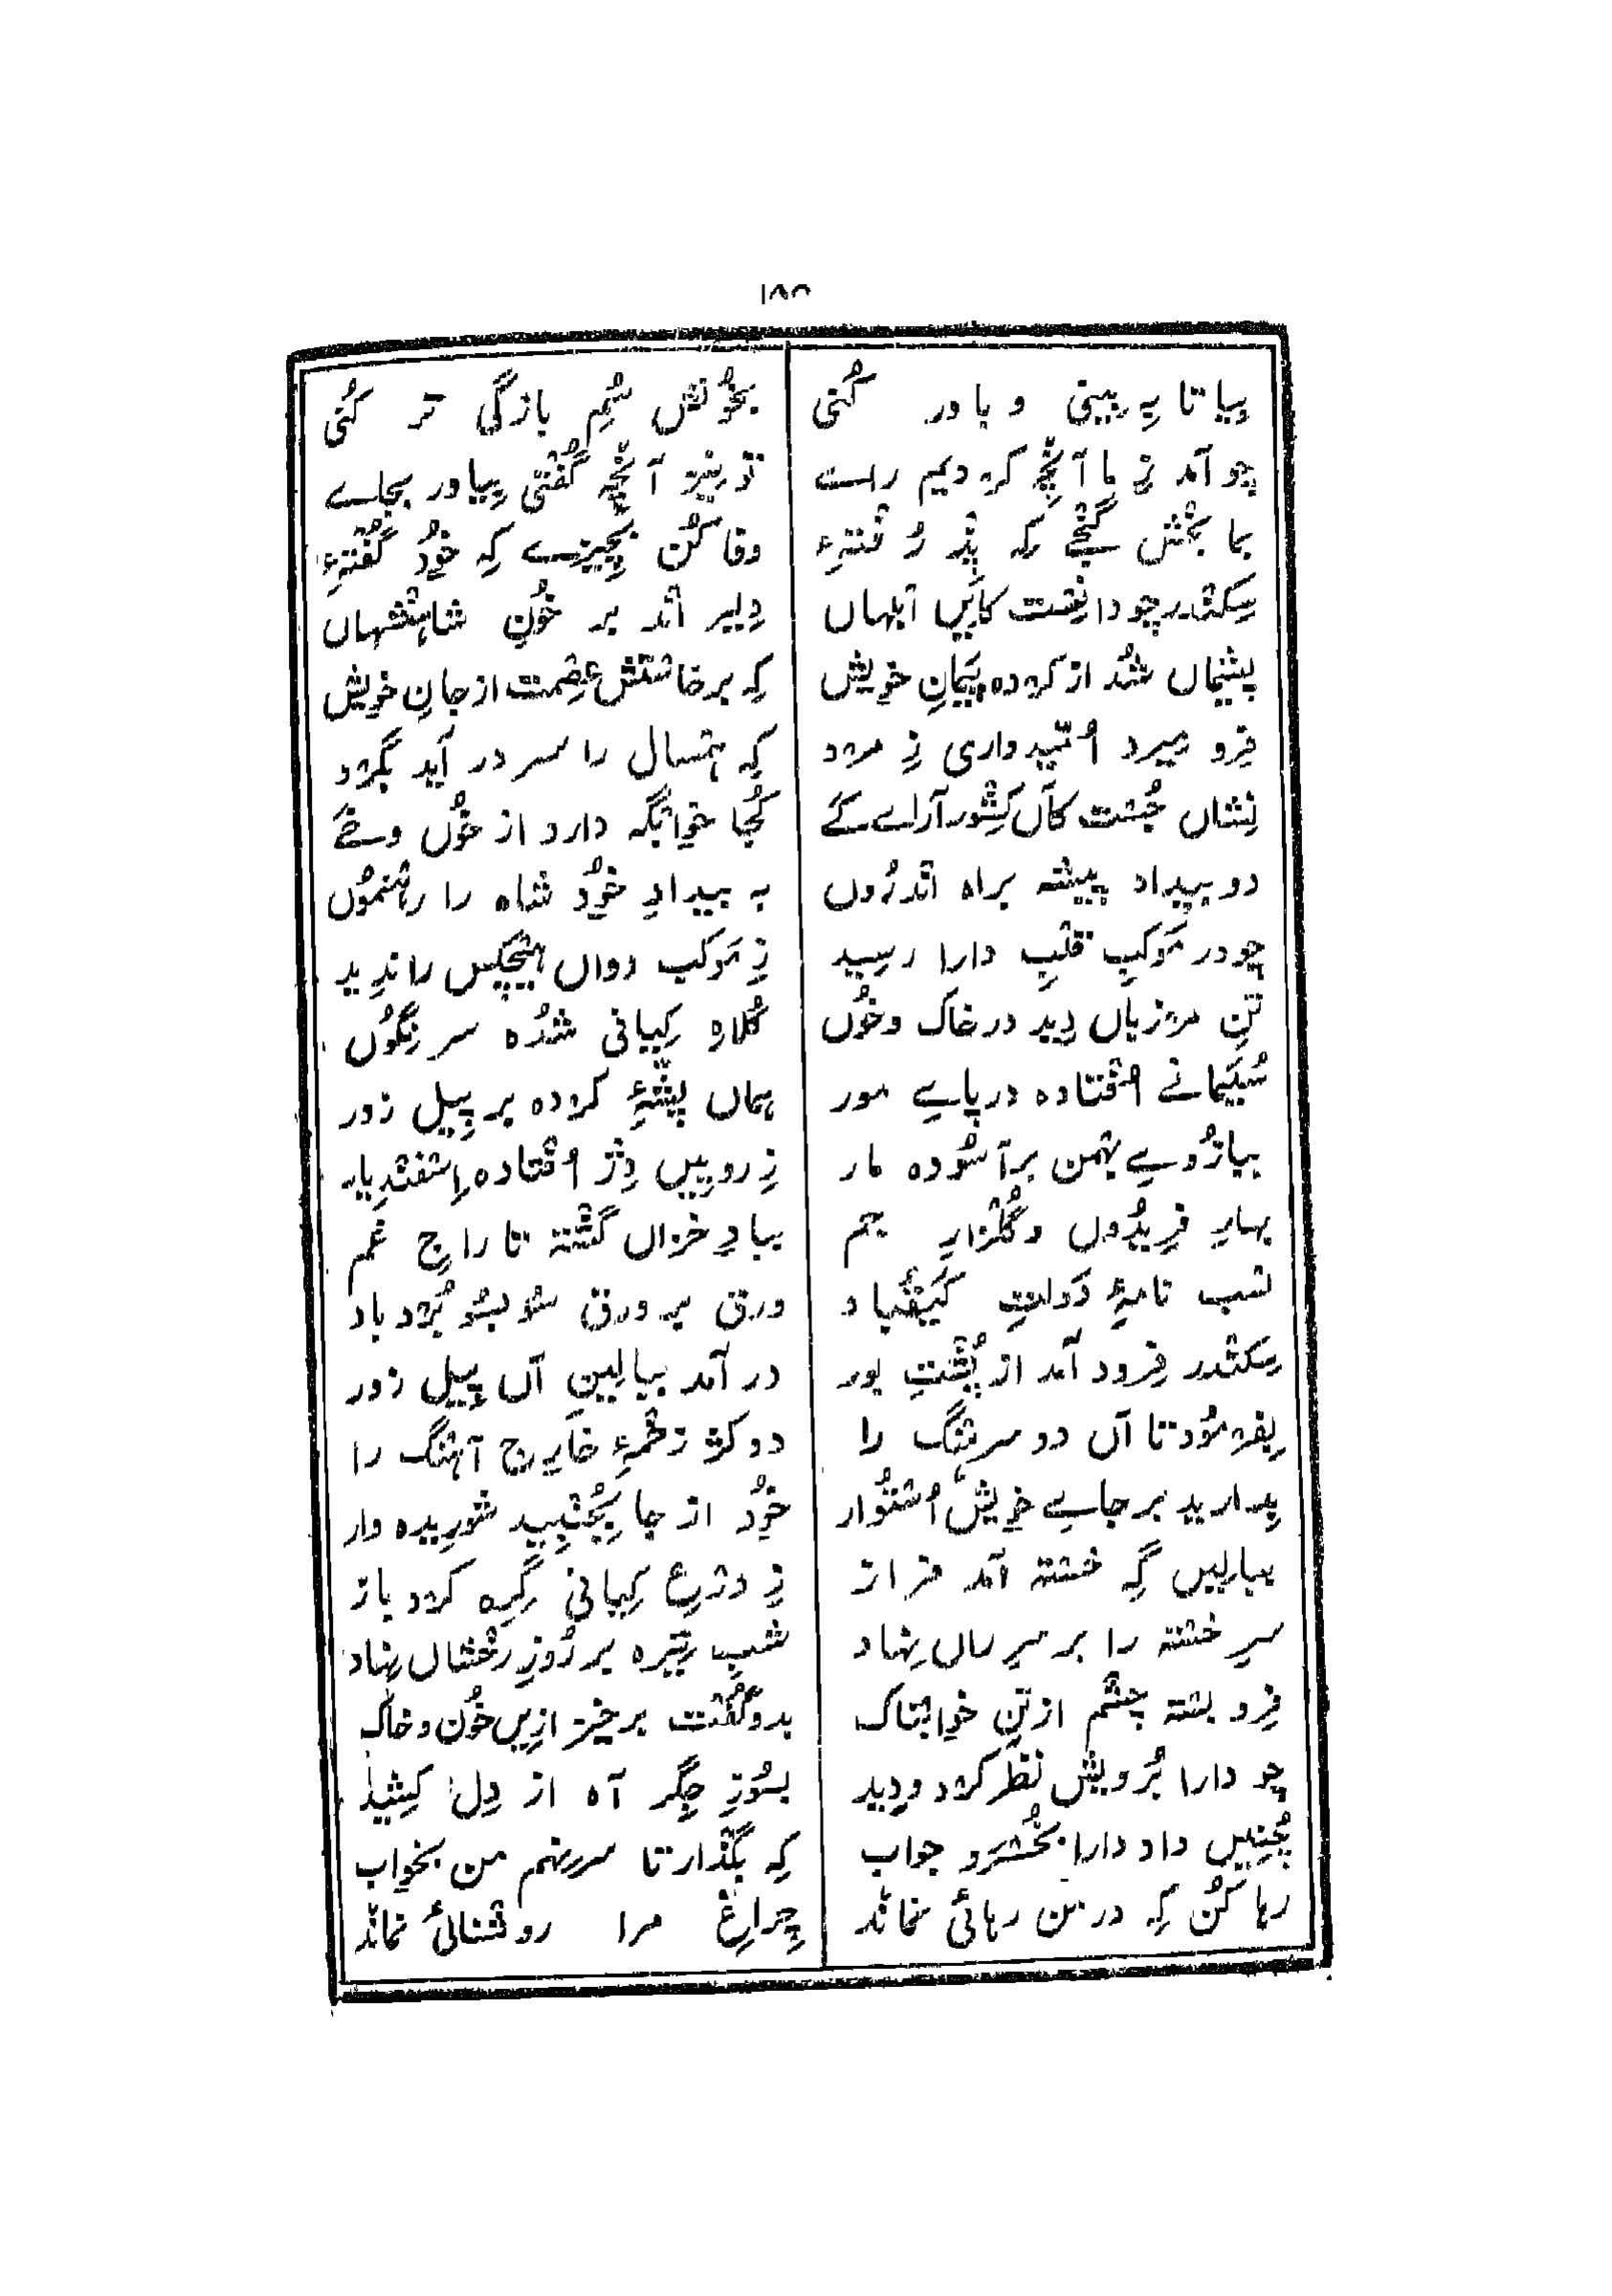 ۱۸۵
بیا تا بہ بینی و باور کُنی بخُونش سُمِ بارگی تر کُنی
چو آمد زِ ما آنچہ کردیم راست تو نیز آنچہ گُفتی بیاور بجاے
بما بخش گنجے کہ پذرُفتۂ وفا کُن بچیزے کہ خود گُفتۂ
سِکندر چو دانِست کایں ابلہاں دِلیر اند بر خُونِ شاہنشہاں
پشیماں شُد از کردہ پیمانِ خویش کہ برخاستش عِصمت از جانِ خویش
فِرو میرد اُمّیدواری زِ مرد کہ ہمسال را سر در آید بگرد
نِشاں جُست کاں کِشور آراے کے کُجا خوابگہ دارد از خُوں و خَے
دو بیداد پیشہ براہ اندرُوں بہ بیدادِ خود شاہ را رہنمُوں
چو در موکبِ قلبِ دارا رسید زِ موکب رواں ہیچکس را ندید
تنِ مرزباں دید در خاک و خُوں کُلاہِ کیانی شدُہ سر نِگُوں
سُلیمانے اُفتادہ در پاے مور ہماں پشّۂِ کردہ بر پیل زور
ببازُوے بہمن بر آسُودہ مار زِ روییں دِژ اُفتادہ اِسفندِیار
بہارِ فرِیدُوں و گُلزارِ جم ببادِ خزاں گشتہ تاراجِ غم
نسب نامۂِ دَولتِ کَیقُباد ورق بر ورق سُو بسُو بُرد باد
سِکندر فِرود آمد از پُشتِ بور در آمد ببالینِ آں پیل زور
بِفرمُود تا آں دو سرہنگ را دو کژ زخمۂِ خارِج آہنگ را
بِدارید بر جاے خویش اُستُوار خود از جا بِجُنبید شورِیدہ وار
ببالیں گہِ خستہ آمد فراز زِ درعِ کیانی گِرِہ کرد باز
سرِ خستہ را بر سرِ راں نِہاد شبِ تیرہ بر رُوزِ رخشاں نِہاد
فِرو بستہ چشم از تنِ خوابناک بدو گُفت برخیز ازیں خُون و خاک
چو دارا بُرویش نظر کرد و دید بسُوزِ جِگر آہ از دِل کشید
چُنیں داد دارا بخُسرو جواب کہ بگذار تا سر نہم من بخواب
رہا کُن کہ در من رہائی نماند چِراغِ مرا روشنائی نماند